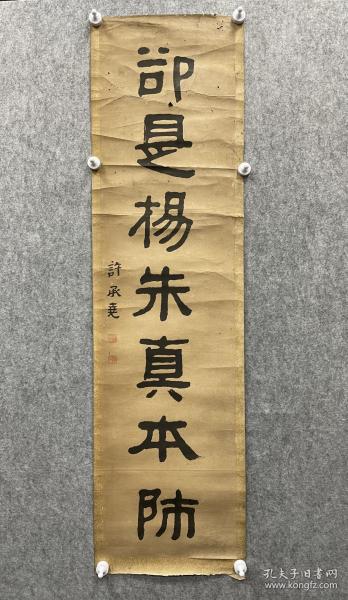 卻是楊朱真本師
許承堯
孔夫子旧书网
www.kongfz.com